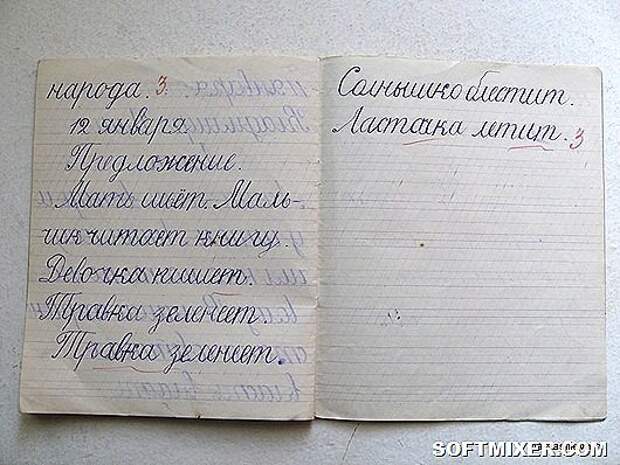 народа. 3
12 января
Предложение.
Мать шьёт. Маль-
чик читает книгу.
Девочка пишет.
Травка зеленеет.
Травка зеленеет.
Солнышко блестит.
Ласточка летит. 3
SOFTMIXER.COM